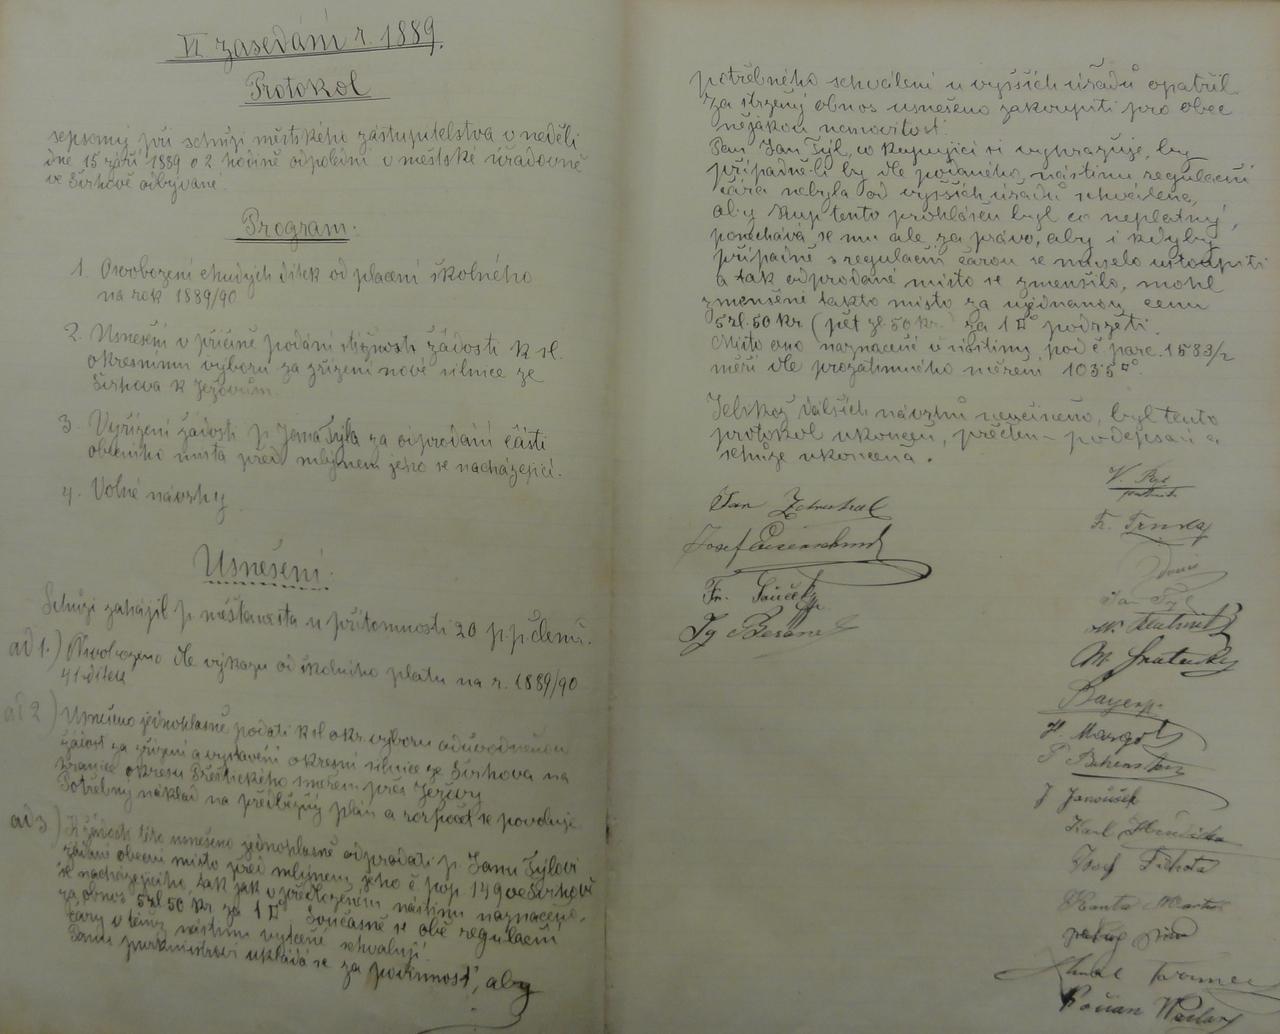 VI. zasedání r. 1889.
Protokol
sepsaný při schůzi městského zastupitelstva v neděli
dne 15 září 1889 o 2 hodině odpolední v městské úřadovně
ve Švihově odbývané.
Program:
1. Osvobození chudých dítek od placení školného
na rok 1889/90
2. Usnešení v příčině podání žádosti k sl.
okresnímu výboru za zřízení nové silnice ze
Švihova k Jezovům.
3. Vyřízení žádosti p. Jana Týla za odprodání části
obecního místa před mlýnem jeho se nacházející.
4. Volné návrhy
Usnešení:
Schůzi zahájil p. měšťanosta u přítomnosti 20 p.p. členů.
ad 1.) Osvobozeno dle výkazu od školního platu na r. 1889/90
41 dítek
ad 2) Usnešeno jednohlasně podati k sl. okr. výboru odůvodněnou
žádost za zřízení a vystavění okresní silnice ze Švihova na
hranice okresu Přeštického směrem přes Jezovy
Potřebný náklad na předběžný plán a rozpočet se povoluje.
ad 3) K žádosti této usnešeno jednohlasně odprodati p. Janu Týlovi
žádané obecní místo před mlýnem jeho č pop. 149 ve Švihově
se nacházejícího, tak jak v předloženém nástinu naznačeno,
za obnos 5 zl. 50 kr za 1 □°. Současně se obě regulační
čáry v témž nástinu vytčené schvalují.
Panu purkmistrovi ukládá se za povinnost, aby
potřebného schválení u vyšších úřadů opatřil
Za stržený obnos usnešeno zakoupiti pro obec
nějakou nemovitost.
Pan Jan Týl, co kupující si vyhražuje, by
případně-li by dle podaného nástinu regulační
čára nebyla od vyšších úřadů schválena,
aby kup tento prohlášen byl co neplatný,
ponechává se mu ale za právo, aby i kdyby
případně s regulační čarou se muselo ustoupiti
a tak odprodané místo se zmenšilo, mohl
zmenšené takto místo za ujednanou cenu
5 zl. 50 kr (pět zl. 50 kr.) za 1 □° podržeti.
Místo ono naznačené v nástinu pod č parc. 1583/2
měří dle prozatímného měření 103·5 □°.
Jelikož dalších návrhů nečiněno, byl tento
protokol ukončen, přečten podepsán a
schůze ukončena.
Jan
Josef
Fr. Souček
Ig Beran
V. Ryl
Fr. Trnka
Jan Týl
M.
Bayer
H.
J Janoušek
Karl
Josef Tichota